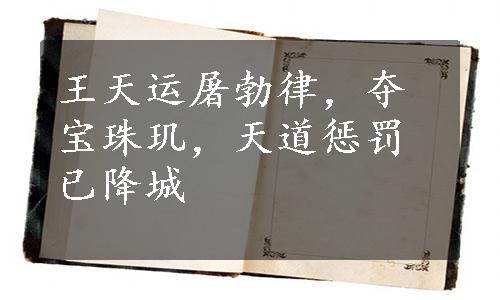 王天运屠勃律，夺
宝珠玑，天道惩罚
已降城